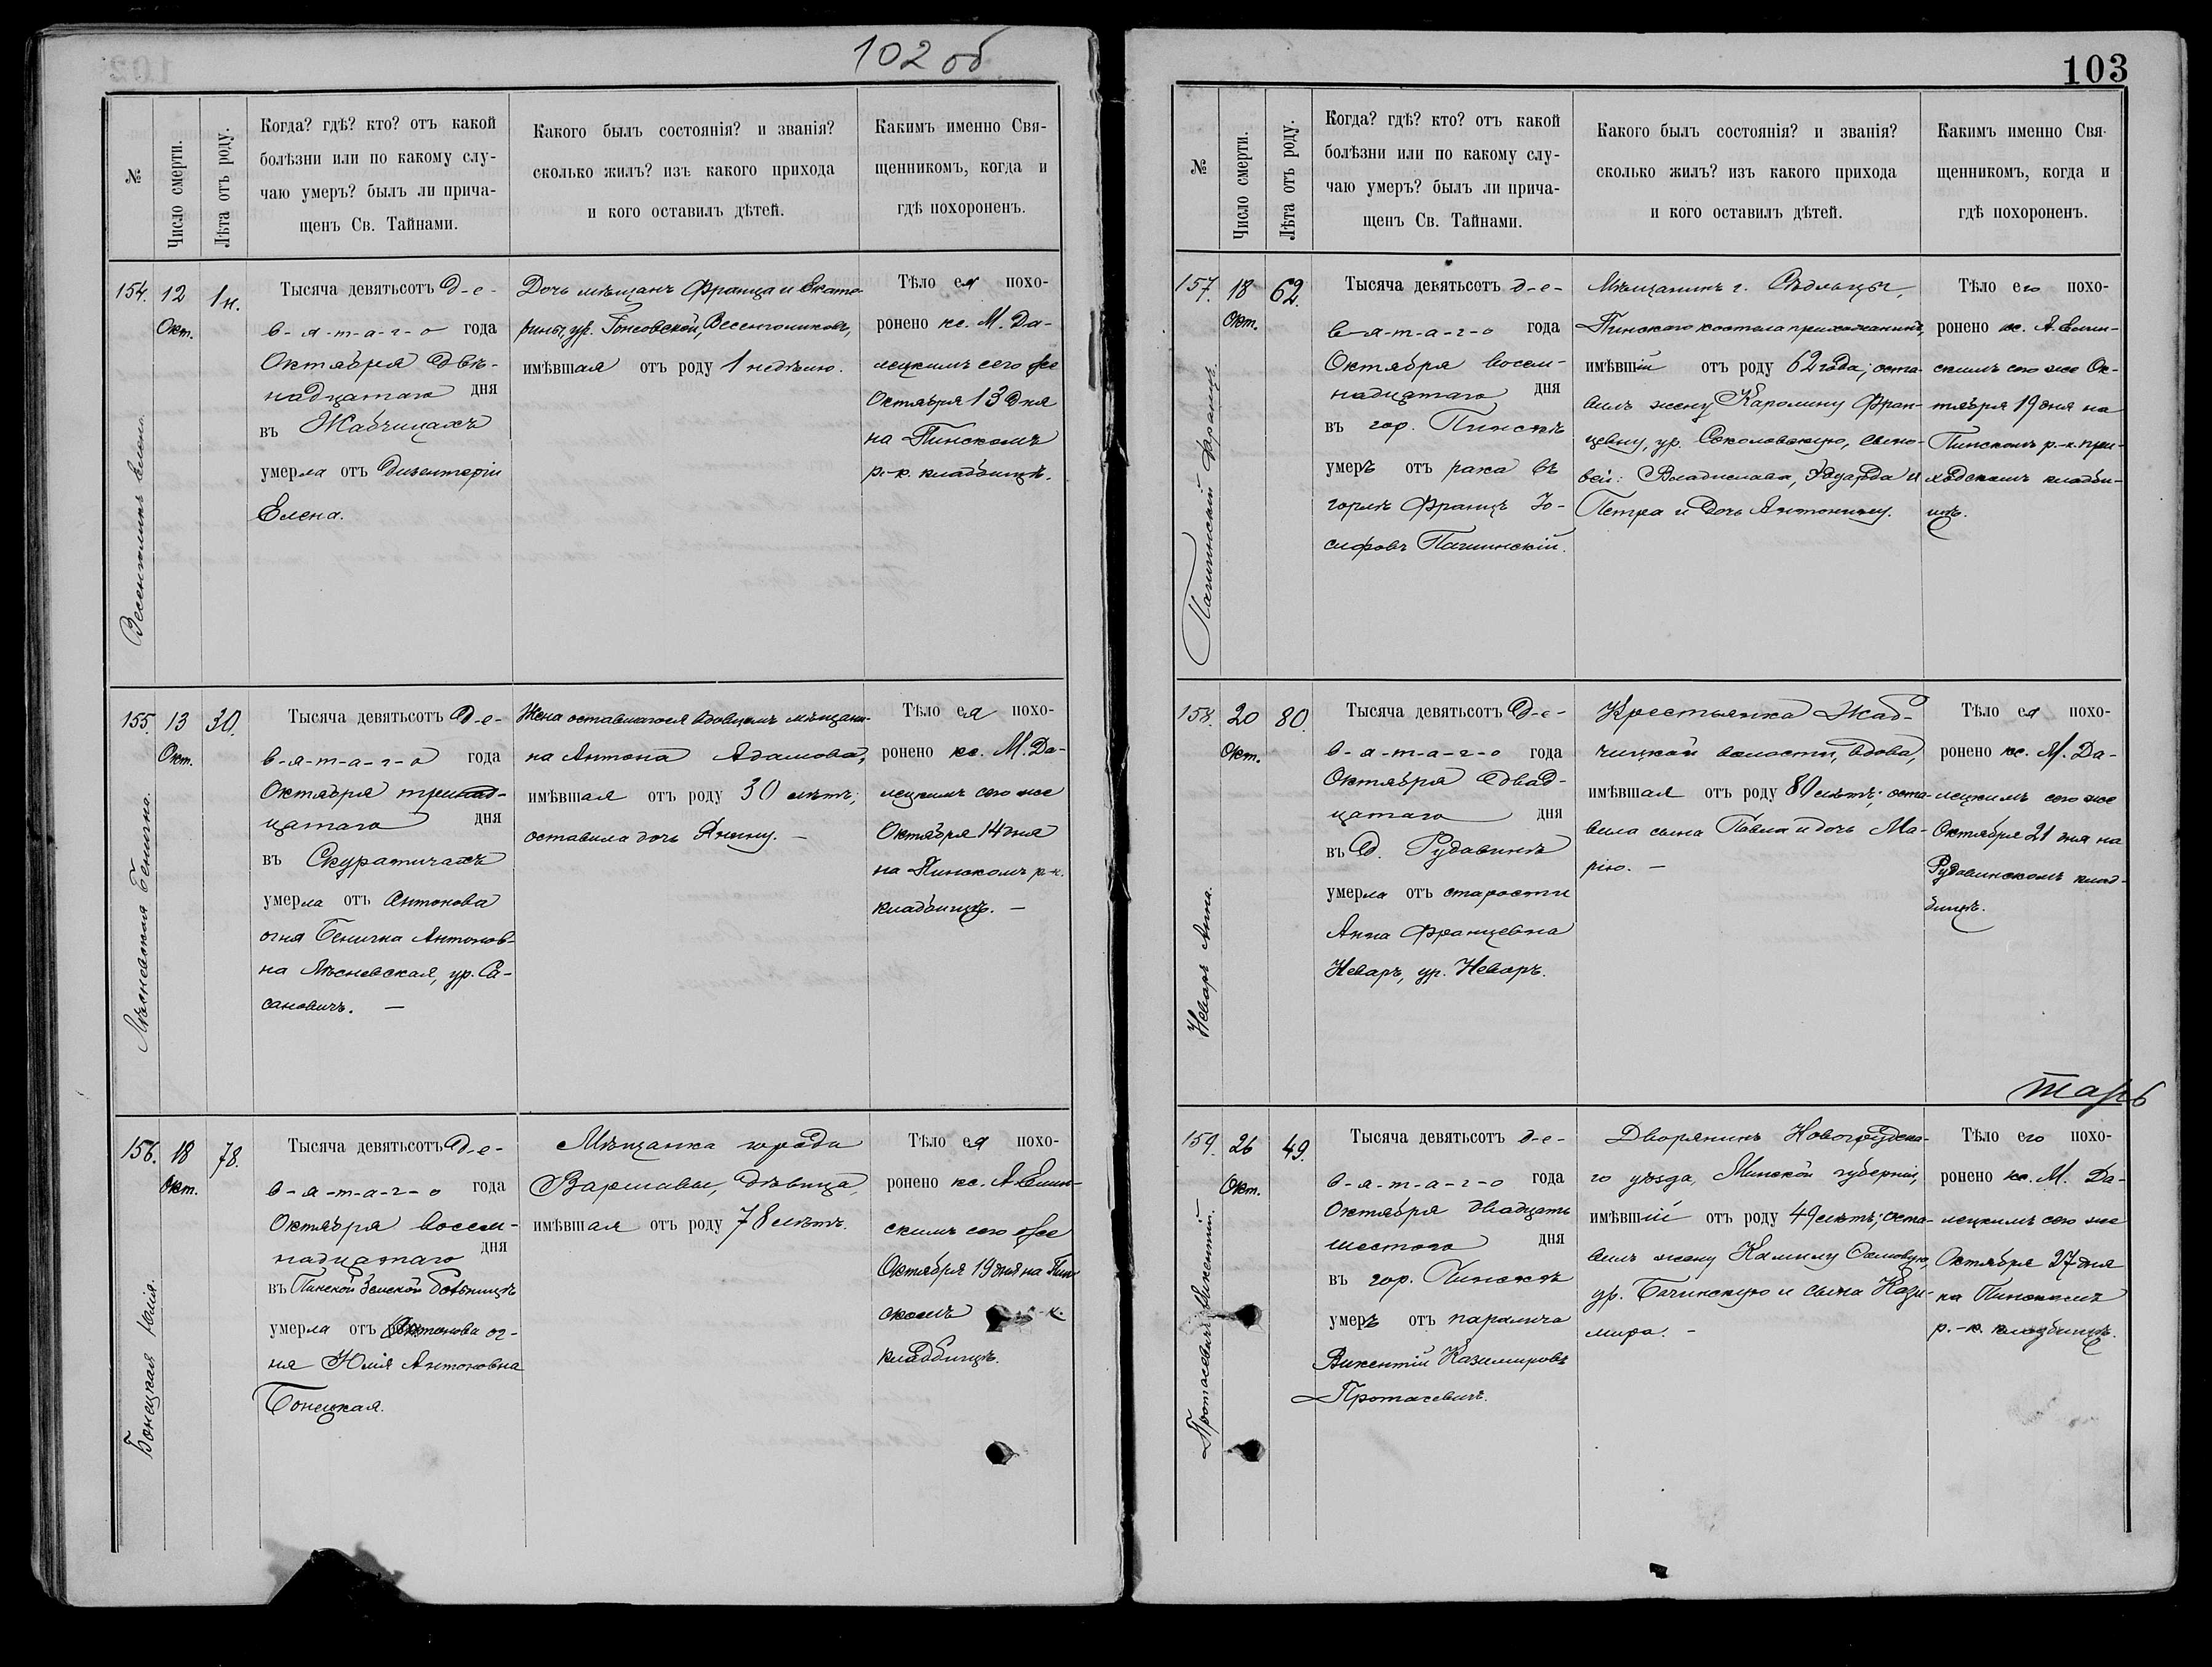 102 об
№
Число смерти.
Лѣта отъ роду.
Когда? гдѣ? кто? отъ какой
болѣзни или по какому слу-
чаю умеръ? былъ ли прича-
щенъ Св. Тайнами.
Какого былъ состоянія? и званія?
сколько жилъ? изъ какого прихода
и кого оставилъ дѣтей.
Какимъ именно Свя-
щенникомъ, когда и
гдѣ похороненъ.
154.
12
Окт.
1 н.
Елена.
Тысяча девятьсотъ д-е-
в-я-т-а-г-о года
Октября двѣ-
надцатаго дня
въ Жабчицахъ
умерла отъ дизентеріи
Елена.
Дочь мѣщанъ Франца и Екате-
рины, ур.
имѣвшая отъ роду 1 недѣлю.
Тѣло ея похо-
ронено кс. М. Да-
лецкимъ сего же
Октября 13 дня
на Пинскомъ
р.-к. кладбищѣ.
155.
13
Окт.
30.
Лѣсневская Бенигна.
Тысяча девятьсотъ д-е-
в-я-т-а-г-о года
Октября тринад-
цатаго дня
въ Скуратичахъ
умерла отъ Антонова
огня Бенигна Антонов-
на Лѣсневская, ур. Са-
сановичъ. —
Жена оставшагося вдовцемъ мѣщани-
на Антона Адамова,
имѣвшая отъ роду 30 лѣтъ;
оставила дочь Янину. —
Тѣло ея похо-
ронено кс. М. Да-
лецкимъ сего же
Октября 14 дня
на Пинскомъ р.-к.
кладбищѣ. —
156.
18
Окт.
78.
Бонецкая Юлія.
Тысяча девятьсотъ д-е-
в-я-т-а-г-о года
Октября восем-
надцатаго дня
въ Пинской Земской больницѣ
умерла отъ Антонова ог-
ня Юлія Антоновна
Бонецкая.
Мѣщанка города
Варшавы, дѣвица,
имѣвшая отъ роду 78 лѣтъ.
Тѣло ея похо-
ронено кс. А.
скимъ сего же
Октября 19 дня на Пин-
скомъ -к.
кладбищѣ.
103
№
Число смерти.
Лѣта отъ роду.
Когда? гдѣ? кто? отъ какой
болѣзни или по какому слу-
чаю умеръ? былъ ли прича-
щенъ Св. Тайнами.
Какого былъ состоянія? и званія?
сколько жилъ? изъ какого прихода
и кого оставилъ дѣтей.
Какимъ именно Свя-
щенникомъ, когда и
гдѣ похороненъ.
157.
18
Окт.
62.
Францъ.
Тысяча девятьсотъ д-е-
в-я-т-а-г-о года
Октября восем-
надцатаго дня
въ гор. Пинскѣ
умеръ отъ рака въ
горлѣ Францъ Іо-
сифовъ
Мѣщанинъ г. Сѣдльцы,
Пинскаго костела прихожанинъ,
имѣвшій отъ роду 62 года; оста-
вилъ жену Каролину Фран-
цевну, ур. Соколовскую, сыно-
вей: Владислава, Эдуарда и
Петра и дочь Антонину.
Тѣло его похо-
ронено кс. А.
скимъ сего же Ок-
тября 19 дня на
Пинскомъ р.-к. при-
ходскомъ кладби-
щѣ.
158.
20
Окт.
80.
Неваръ Анна.
Тысяча девятьсотъ д-е-
в-я-т-а-г-о года
Октября двад-
цатаго дня
въ д. Рудавинѣ
умерла отъ старости
Анна Францевна
Неваръ, ур. Неваръ.
Крестьянка Жаб-
чицкой волости, вдова,
имѣвшая отъ роду 80 лѣтъ; оста-
вила сына Павла и дочь Ма-
рію. —
Тѣло ея похо-
ронено кс. М. Да-
лецкимъ сего же
Октября 21 дня на
Рудавинскомъ клад-
бищѣ.
159.
26
Окт.
49.
Протасевичъ Викентій.
Тысяча девятьсотъ д-е-
в-я-т-а-г-о года
Октября двадцать
шестого дня
въ гор. Пинскѣ
умеръ отъ паралича
Викентій Казимировъ
Протасевичъ.
Дворянинъ Новогрудска-
го уѣзда, Минской губерніи,
имѣвшій отъ роду 49 лѣтъ; оста-
вилъ жену Камилу
ур. Бачинскую и сына Кази-
мира. —
Тѣло его похо-
ронено кс. М. Да-
лецкимъ сего же
Октября 27 дня
на Пинскомъ
р.-к. кладбищѣ.